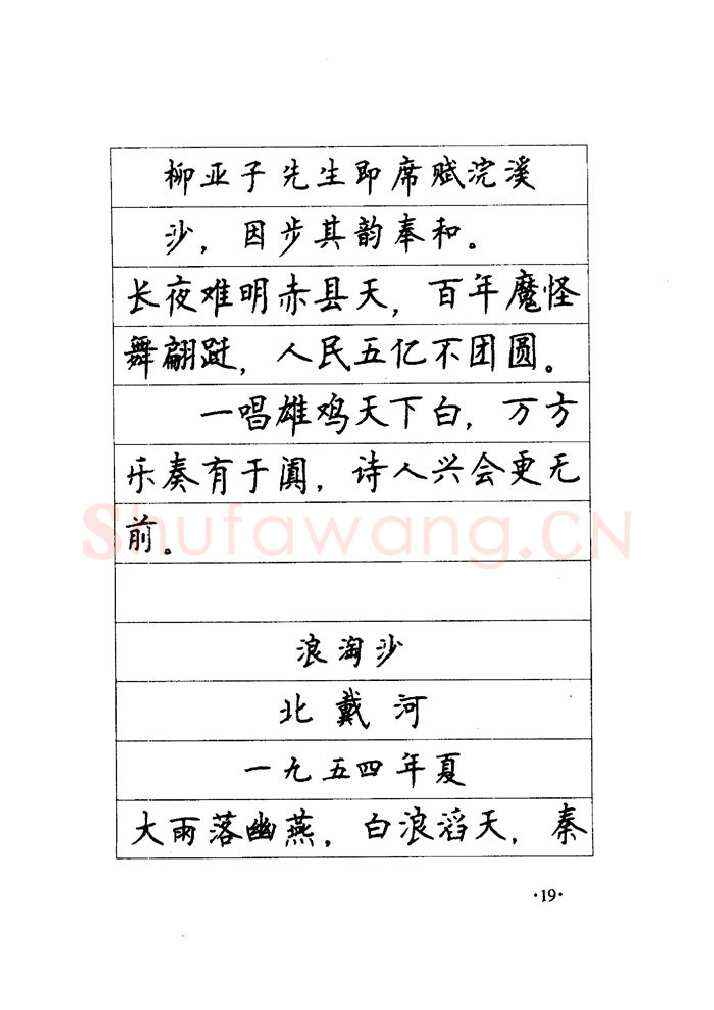 柳亚子先生即席赋浣溪
沙，因步其韵奉和。
长夜难明赤县天，百年魔怪
舞翩跹，人民五亿不团圆。
一唱雄鸡天下白，万方
乐奏有于阗，诗人兴会更无
前。
Shufawang.CN
浪淘沙
北戴河
一九五四年夏
大雨落幽燕，白浪滔天，秦
·19·